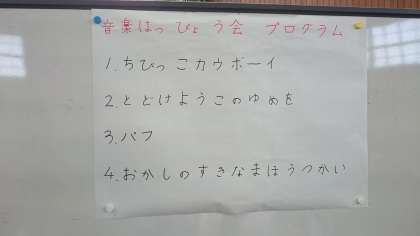 音楽はっぴょう会 プログラム
1.ちびっこカウボーイ
2.とどけようこのゆめを
3.パフ
4.おかしのすきなまほうつかい